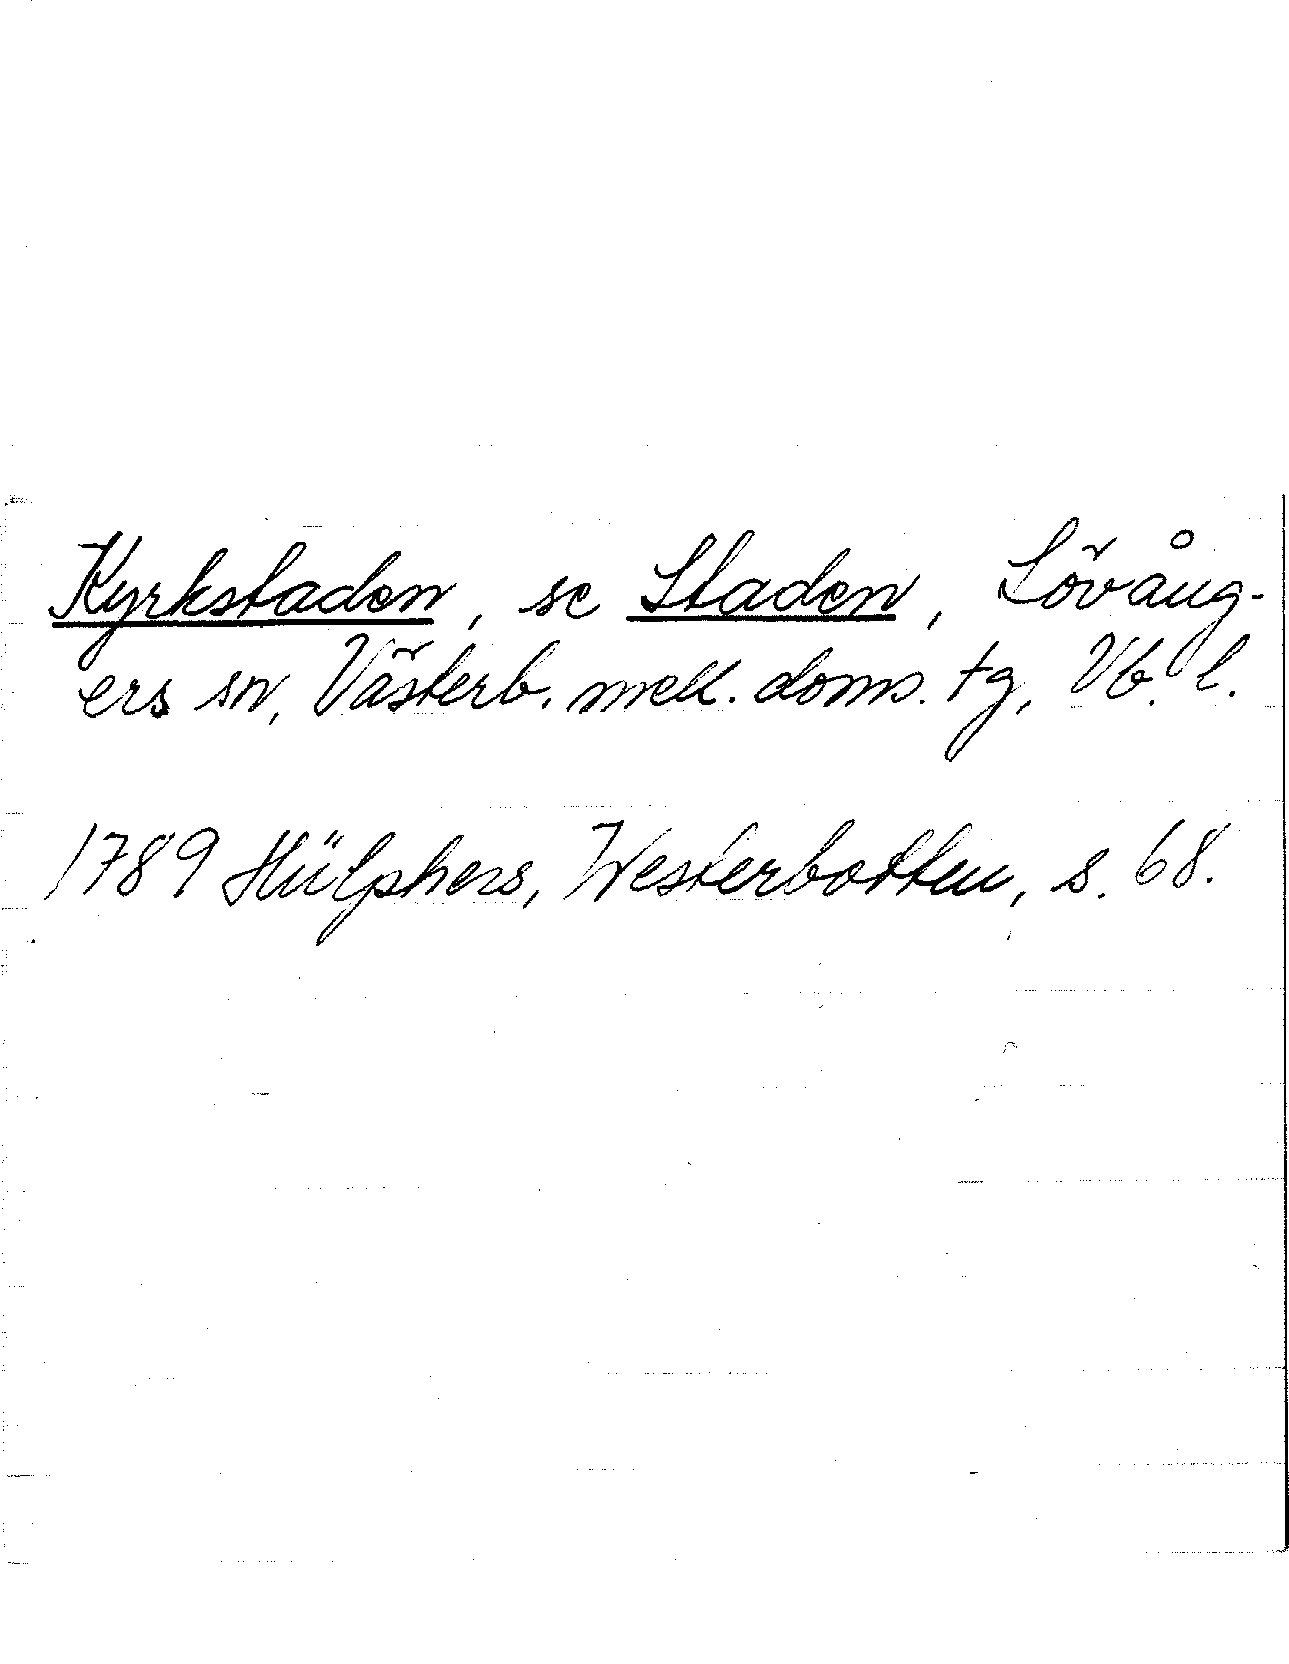 Kyrkstaden, se Staden, Lövång-
ers sn, Västerb. mell. doms. tg, Vb. l.
1789 Hülphers, Westerbotten, s. 68.